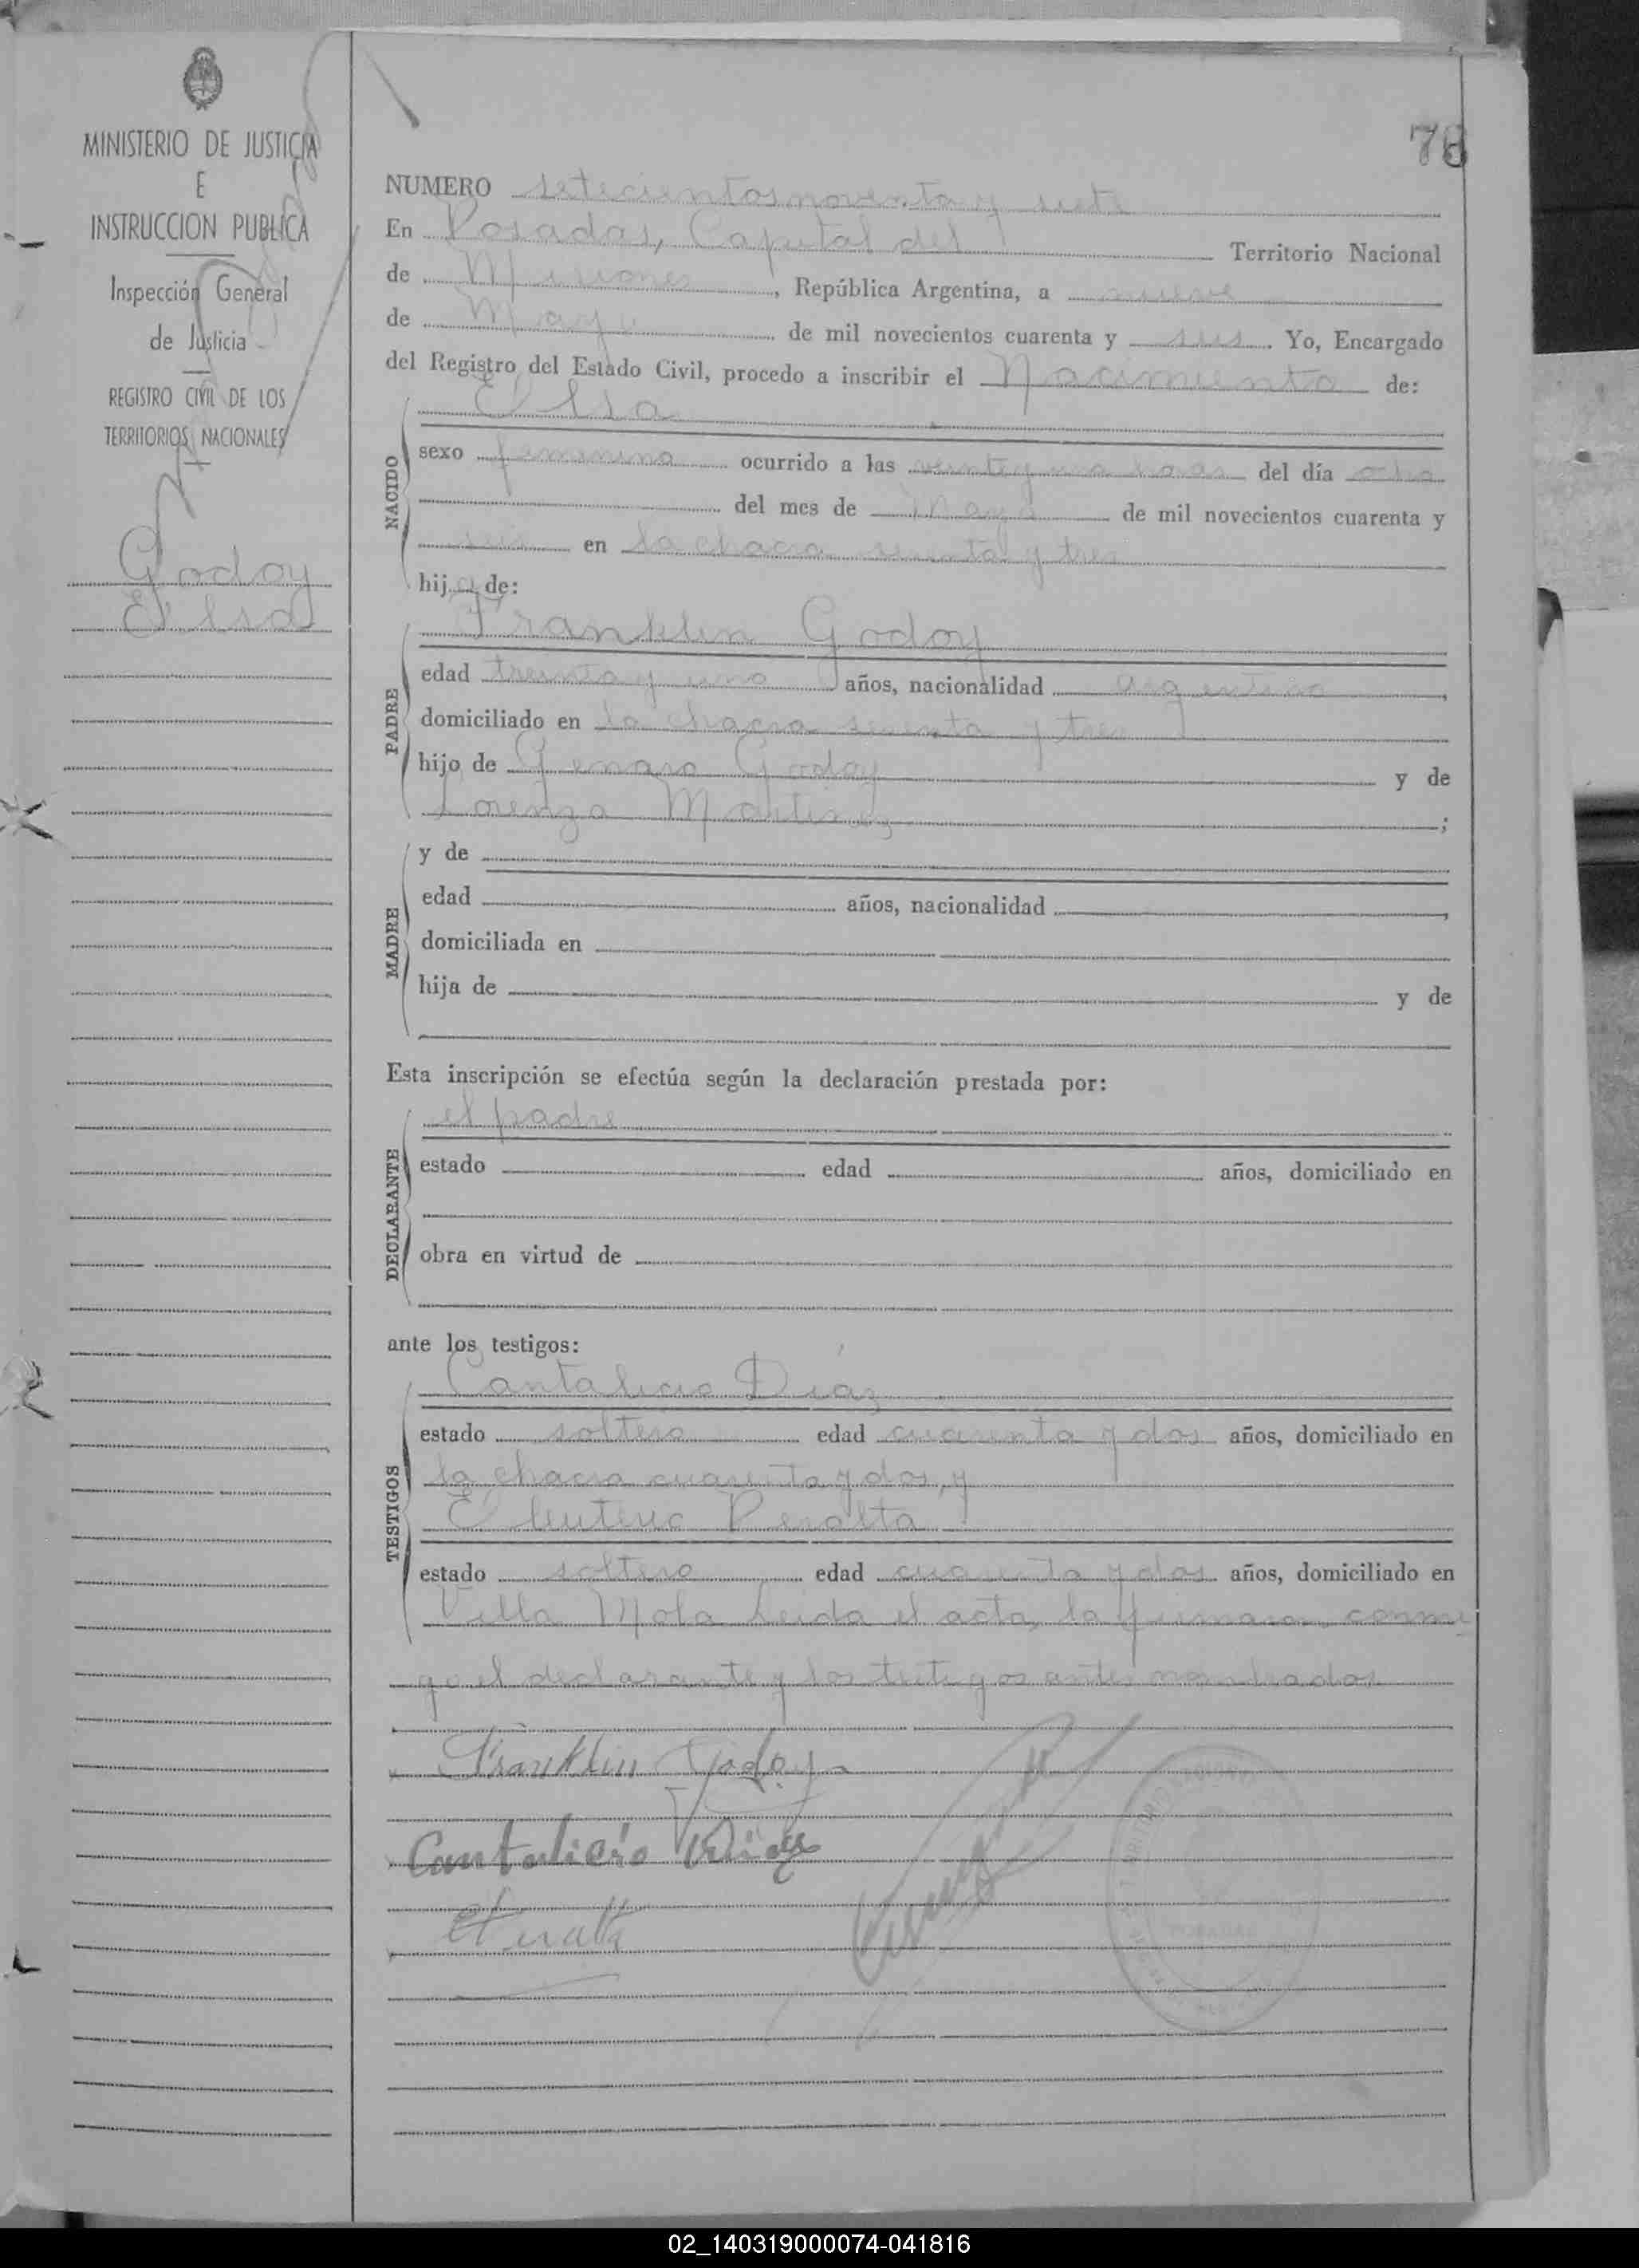 78
MINISTERIO DE JUSTICIA
E
INSTRUCCION PUBLICA
Inspección General
de Justicia
REGISTRO CIVIL DE LOS
TERRITORIOS NACIONALES
Godoy
Elsa
NUMERO setecientos noventa y siete
En Posadas, Capital del Territorio Nacional
de Misiones, República Argentina, a nueve
de Mayo de mil novecientos cuarenta y seis. Yo, Encargado
del Registro del Estado Civil, procedo a inscribir el Nacimiento de:
NACIDO
Elsa
sexo femenino ocurrido a las veinte y una horas del día ocho
del mes de Mayo de mil novecientos cuarenta y
seis en la chacra sesenta y tres
hija de:
PADRE
Franklin Godoy
edad treinta y uno años, nacionalidad argentino,
domiciliado en la chacra sesenta y tres
hijo de Genaro Godoy y de
Lorenza Martinez;
MADRE
y de
edad años, nacionalidad,
domiciliada en
hija de y de
Esta inscripción se efectúa según la declaración prestada por:
DECLARANTE
el padre
estado edad años, domiciliado en
obra en virtud de
ante los testigos:
TESTIGOS
Cantalicio Díaz
estado soltero edad cuarenta y dos años, domiciliado en
la chacra cuarenta y dos, y
Eleuterio Peralta
estado soltero edad cuarenta y dos años, domiciliado en
Villa Mola Leida el acta, la firmaron conmi
go el declarante y los testigos antes nombrados
Franklin Godoy
Cantalicio Diaz
EPeralta
POSADAS
02_140319000074-041816